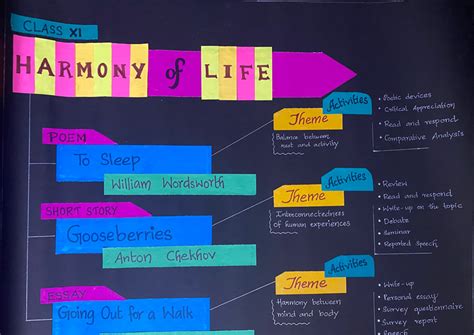 CLASS XI
HARMONY of LIFE
POEM
To Sleep
William Wordsworth
Theme
Balance between
rest and activity
Activities
• Poetic devices
• Critical Appreciation
• Read and respond
• Comparative Analysis
SHORT STORY
Gooseberries
Anton Chekhov
Theme
Interconnectedness
of human experiences
Activities
• Review
• Read and respond
• Write-up on the topic
• Debate
• Seminar
• Reported Speech
ESSAY
Going Out for a Walk
Theme
Harmony between
mind and body
Activities
• Write-up
• Personal essay
• Survey questionnaire
• Survey report
• Speech